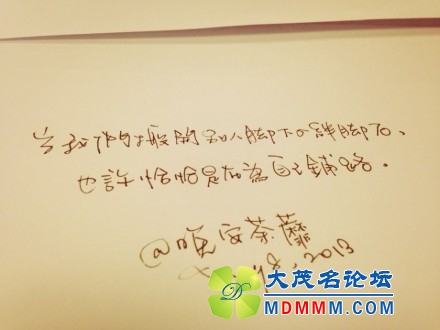 当我们搬開別人脚下的絆脚石、
也許恰恰是在為自己鋪路.
@晚安荼蘼
2013
大茂名论坛
MDMMM.COM